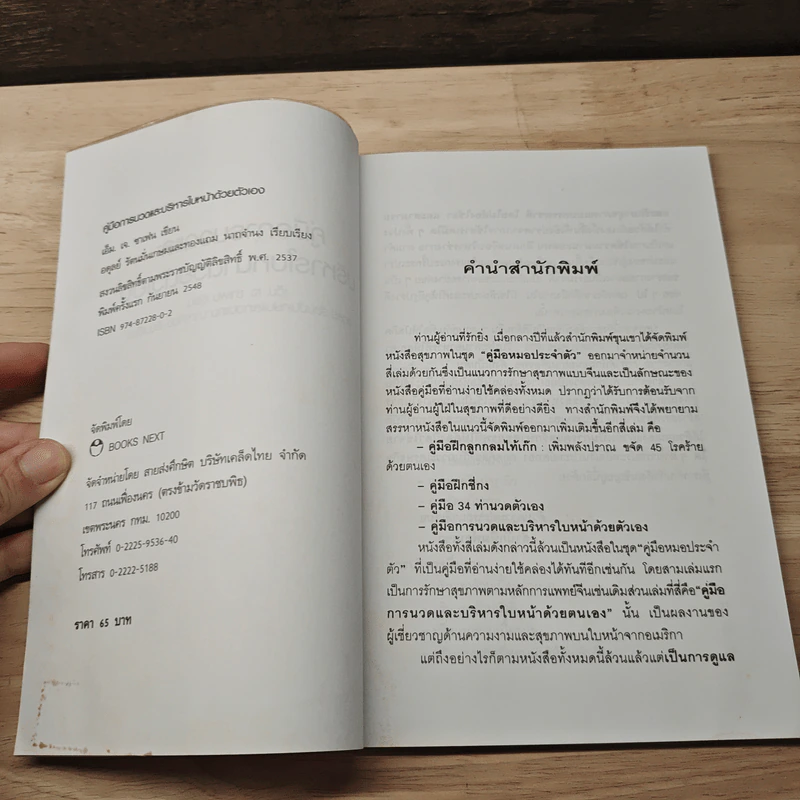 คู่มือการนวดและบริหารใบหน้าด้วยตัวเอง
เอ็ม. เจ. ซาเฟ่น เขียน
อดุลย์ รัตนมั่นเกษมและทองแถม นาถจำนง เรียบเรียง
สงวนลิขสิทธิ์ตามพระราชบัญญัติลิขสิทธิ์ พ.ศ. 2537
พิมพ์ครั้งแรก กันยายน 2548
ISBN 974-87228-0-2
จัดพิมพ์โดย
BOOKS NEXT
จัดจำหน่ายโดย สายส่งศึกษิต บริษัทเคล็ดไทย จำกัด
117 ถนนเฟื่องนคร (ตรงข้ามวัดราชบพิธ)
เขตพระนคร กทม. 10200
โทรศัพท์ 0-2225-9536-40
โทรสาร 0-2222-5188
ราคา 65 บาท
คำนำสำนักพิมพ์
ท่านผู้อ่านที่รักยิ่ง เมื่อกลางปีที่แล้วสำนักพิมพ์ขุนเขาได้จัดพิมพ์
หนังสือสุขภาพในชุด "คู่มือหมอประจำตัว" ออกมาจำหน่ายจำนวน
สี่เล่มด้วยกันซึ่งเป็นแนวการรักษาสุขภาพแบบจีนและเป็นลักษณะของ
หนังสือคู่มือที่อ่านง่ายใช้คล่องทั้งหมด ปรากฏว่าได้รับการต้อนรับจาก
ท่านผู้อ่านผู้ใฝ่ในสุขภาพที่ดีอย่างดียิ่ง ทางสำนักพิมพ์จึงได้พยายาม
สรรหาหนังสือในแนวนี้จัดพิมพ์ออกมาเพิ่มเติมขึ้นอีกสี่เล่ม คือ
– คู่มือฝึกลูกกลมไท้เก๊ก : เพิ่มพลังปราณ ขจัด 45 โรคร้าย
ด้วยตนเอง
– คู่มือฝึกชี่กง
– คู่มือ 34 ท่านวดตัวเอง
– คู่มือการนวดและบริหารใบหน้าด้วยตัวเอง
หนังสือทั้งสี่เล่มดังกล่าวนี้ล้วนเป็นหนังสือในชุด"คู่มือหมอประจำ
ตัว" ที่เป็นคู่มือที่อ่านง่ายใช้คล่องได้ทันทีอีกเช่นกัน โดยสามเล่มแรก
เป็นการรักษาสุขภาพตามหลักการแพทย์จีนเช่นเดิมส่วนเล่มที่สี่คือ"คู่มือ
การนวดและบริหารใบหน้าด้วยตนเอง" นั้น เป็นผลงานของ
ผู้เชี่ยวชาญด้านความงามและสุขภาพบนใบหน้าจากอเมริกา
แต่ถึงอย่างไรก็ตามหนังสือทั้งหมดนี้ล้วนแล้วแต่เป็นการดูแล